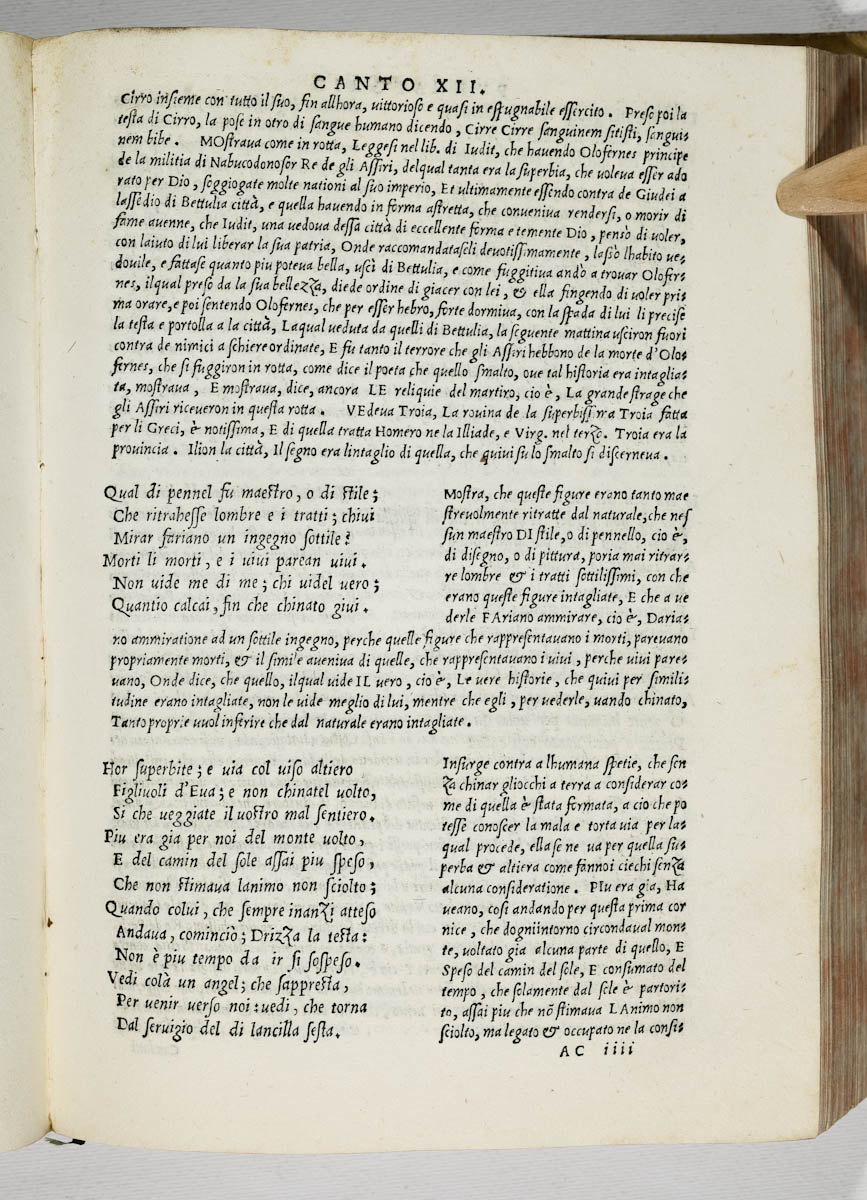 CANTO XII.
Cirro insieme con tutto il suo, fin allhora, uittorioso e quasi in espugnabile essercito. Preso poi la
testa di Cirro, la pose in otro di sangue humano dicendo, Cirre Cirre sanguinem sitisti, sangui-
nem bibe. MOstraua come in rotta, Leggesi nel lib. di Iudit, che hauendo Olofernes principe
de la militia di Nabucodonosor Re de gli Assiri, delqual tanta era la superbia, che uoleua esser ado
rato per Dio, seggiogate molte nationi al suo imperio, Et ultimamente essendo contra de Giudei a
lassedio di Bettulia città, e quella hauendo in forma astretta, che conueniua rendersi, o morir di
fame auenne, che Iudit, una uedoua dessa città di eccellente forma e temente Dio, pensò di uoler,
con laiuto di lui liberar la sua patria, Onde raccomandataseli deuotissimamente, lasiò lhabito ue-
douile, e fattase quanto piu poteua bella, uscì di Bettulia, e come fuggitiua andò a trouar Olofer-
nes, ilqual preso da la sua bellezza, diede ordine di giacer con lei, & ella fingendo di uoler pri-
ma orare, e poi sentendo Olofernes, che per esser hebro, forte dormiua, con la spada di lui li precise
la testa e portolla a la città, Laqual ueduta da quelli di Bettulia, la seguente mattina usciron fuori
contra de nimici a schiere ordinate, E fu tanto il terrore che gli Assiri hebbono de la morte d'Olo-
fernes, che si fuggiron in rotta, come dice il poeta che quello smalto, oue tal historia era intaglia-
ta, mostraua, E mostraua, dice, ancora LE reliquie del martiro, cio è, La grande strage che
gli Assiri riceueron in questa rotta. VEdeua Troia, La rouina de la superbissima Troia fatta
per li Greci, è notissima, E di quella tratta Homero ne la Illiade, e Virg. nel terzo. Troia era la
prouincia. Ilion la città, Il segno era lintaglio di quella, che quiui su lo smalto si discerneua.
Qual di pennel fu maestro, o di stile;
Che ritrahesse lombre e i tratti; chiui
Mirar fariano un ingegno sottile?
Morti li morti, e i uiui parean uiui.
Non uide me di me; chi uidel uero;
Quantio calcai, fin che chinato giui.
Mostra, che queste figure erano tanto mae
streuolmente ritratte dal naturale, che nes
sun maestro DI stile, o di pennello, cio è,
di disegno, o di pittura, poria mai ritrar-
re lombre & i tratti sottilissimi, con che
erano queste figure intagliate, E che a ue
derle FAriano ammirare, cio è, Daria-
no ammiratione ad un sottile ingegno, perche quelle figure che rappresentauano i morti, pareuano
propriamente morti, & il simile aueniua di quelle, che rappresentauano i uiui, perche uiui pare-
uano, Onde dice, che quello, ilqual uide IL uero, cio è, Le uere historie, che quiui per simili-
tudine erano intagliate, non le uide meglio di lui, mentre che egli, per uederle, uando chinato,
Tanto proprie uuol inferire che dal naturale erano intagliate.
Hor superbite; e uia col uiso altiero
Figliuoli d'Eua; e non chinatel uolto,
Si che ueggiate il uostro mal sentiero.
Piu era gia per noi del monte uolto,
E del camin del sole assai piu speso,
Che non stimaua lanimo non sciolto;
Quando colui, che sempre inanzi atteso
Andaua, cominciò; Drizza la testa:
Non è piu tempo da ir si sospeso.
Vedi colà un angel; che sappresta,
Per uenir uerso noi: uedi, che torna
Dal seruigio del di lancilla sesta.
Insurge contra a lhumana spetie, che sen
za chinar gliocchi a terra a considerar co-
me di quella è stata formata, a cio che po
tesse conoscer la mala e torta uia per la-
qual procede, ella se ne ua per quella su-
perba & altiera come fannoi ciechi senza
alcuna consideratione. PIu era gia, Ha
ueano, così andando per questa prima cor
nice, che dogniintorno circondaual mon-
te, uoltato gia alcuna parte di quello, E
Speso del camin del sole, E consumato del
tempo, che solamente dal sole è partori-
to, assai piu che nō stimaua LAnimo non
sciolto, ma legato & occupato ne la consi-
AC iiii